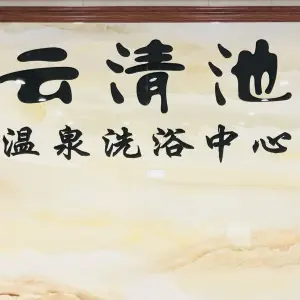 云清池
温泉洗浴中心